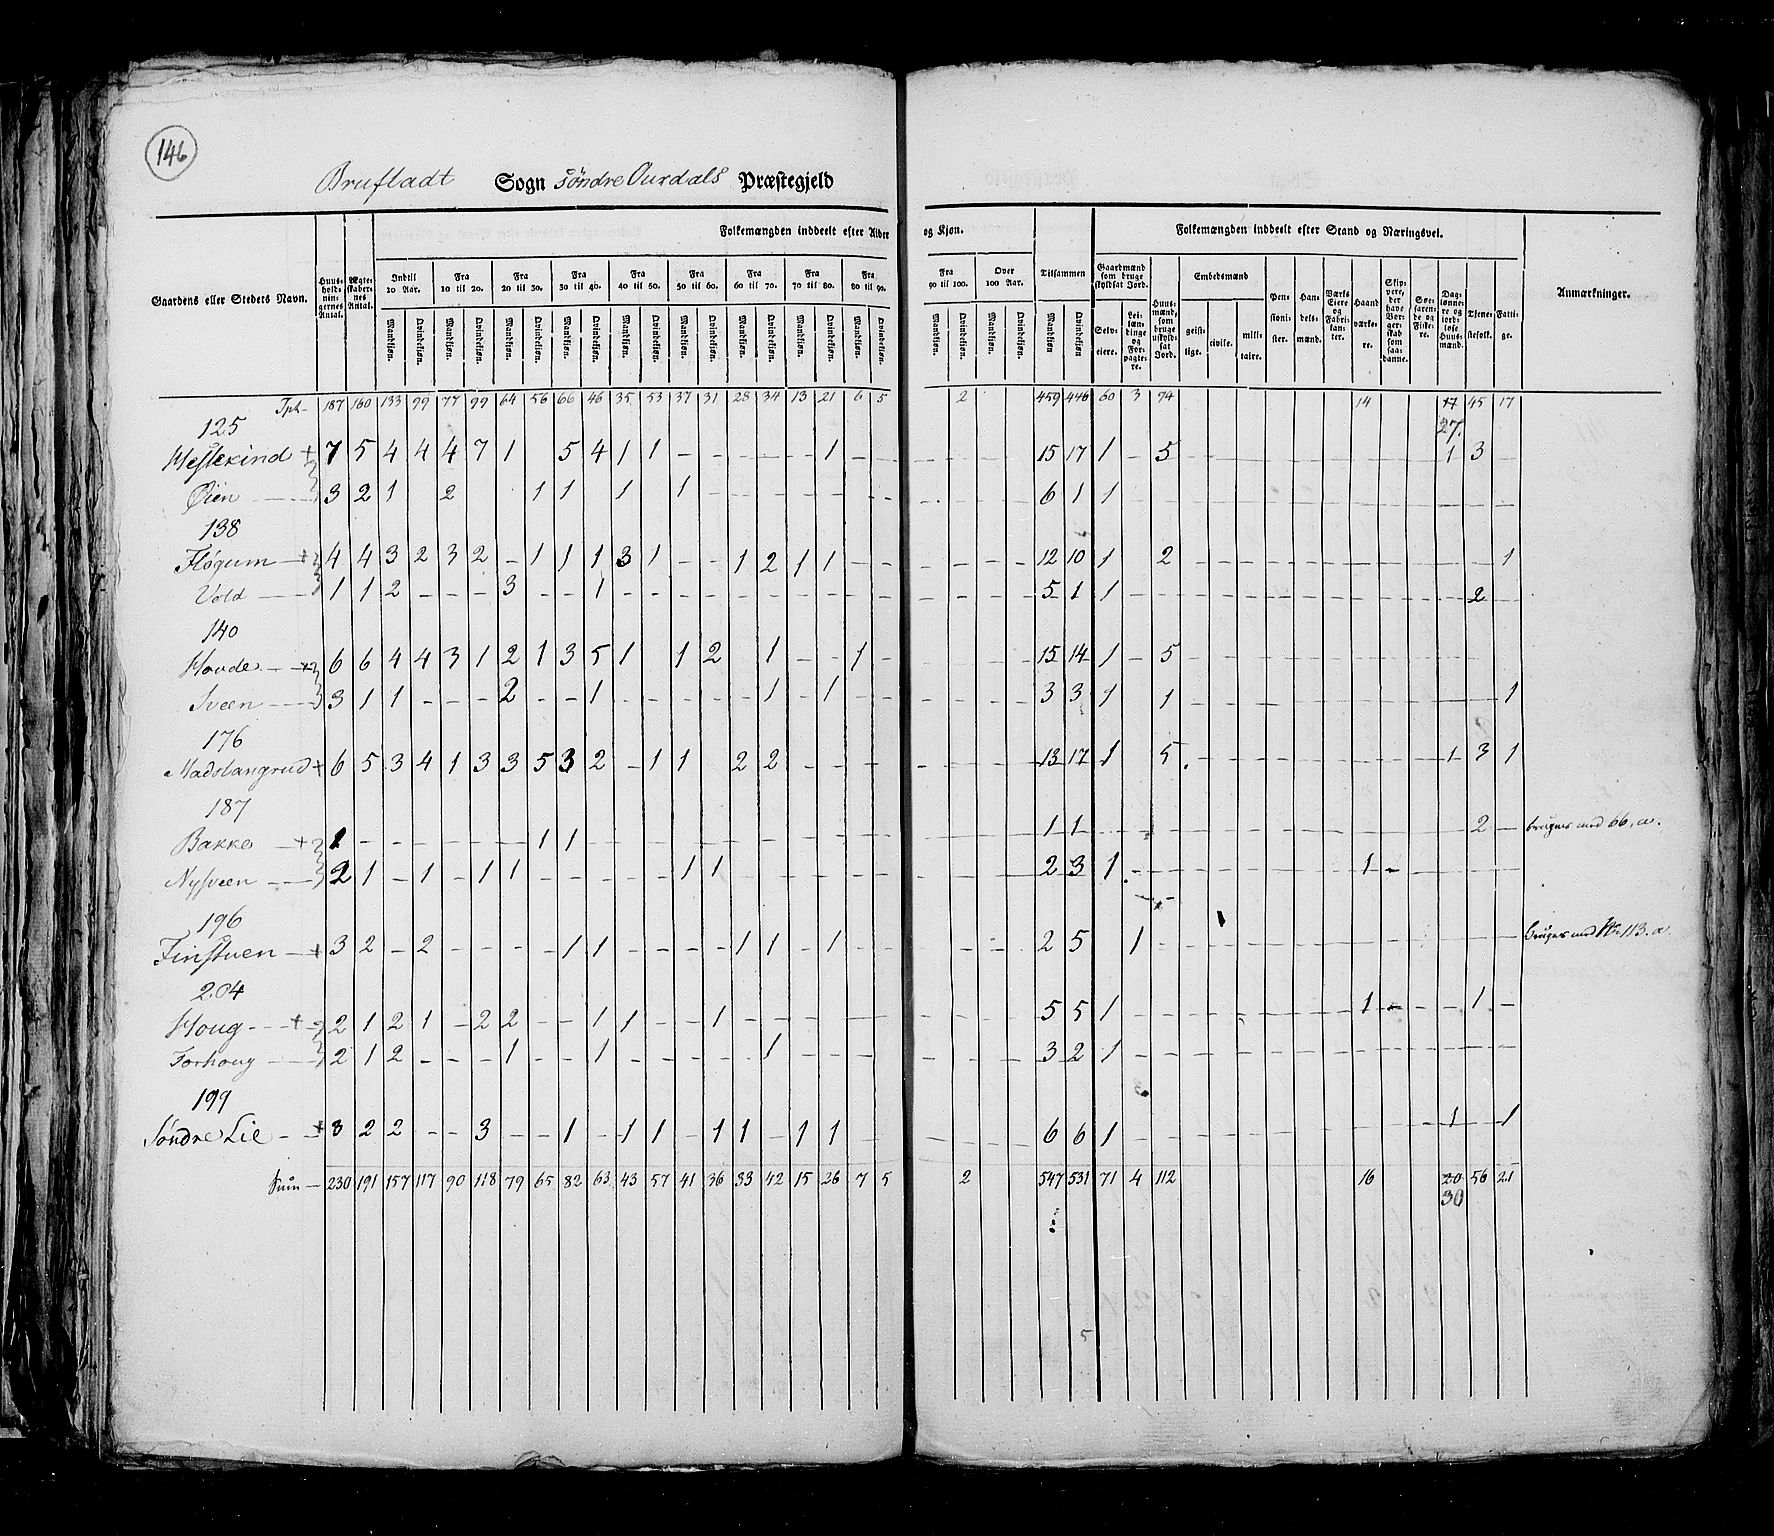 146
Brufladt Sogn Søndre Aurdals Præstegjeld
Gaardens eller Stedets Navn. Huus-holdningernes Antal. Ægteskabernes Antal. Folkemængden inddeelt efter Alder og Kjøn. Tilsammen Folkemængden inddeelt efter Stand og Næringsvei. Anmærkninger.
Indtil 10 Aar. Fra 10 til 20. Fra 20 til 30. Fra 30 til 40. Fra 40 til 50. Fra 50 til 60. Fra 60 til 70. Fra 70 til 80. Fra 80 til 90. Fra 90 til 100. Over 100 Aar. Gaardmænd som bruge skyldsat Jord. Huusmænd, som bruge uskyldsat Jord. Embedsmænd Pensionister. Handelsmænd. Værks Eiere og Fabrikanter. Haandværkere. Skippere, der have Borgerskab som saadanne. Søefarende og Fiskere. Dagslønnere og jordløse Huusmænd. Tjenestefolk. Fattige.
Mandkjøn. Qvindekjøn. Mandkjøn. Qvindekjøn. Mandkjøn. Qvindekjøn. Mandkjøn. Qvindekjøn. Mandkjøn. Qvindekjøn. Mandkjøn. Qvindekjøn. Mandkjøn. Qvindekjøn. Mandkjøn. Qvindekjøn. Mandkjøn. Qvindekjøn. Mandkjøn. Qvindekjøn. Mandkjøn. Qvindekjøn. Mandkjøn Qvindekjøn Selveiere. Leilændinge og Forpagtere. geistlige. civile. militaire.
Tpt- 187 160 133 99 77 99 64 56 66 46 35 53 37 31 28 34 13 21 6 5 2 459 446 60 3 94 14 17 45 17
125 27.
Westekind + 7 5 4 4 4 7 1 5 4 1 1 - - - - - 1 - - 15 17 1 - 5 - 1 3 -
Øien - 3 2 1 2 1 1 1 1 - - - - - - 6 1 1 -
138
Fløgum + 4 4 3 2 3 2 - 1 1 1 3 1 - - 1 2 1 1 - - 12 10 1 2 - 1
Vold - 1 1 2 - - - 3 - - 1 - - - - 5 1 1 - 2 -
140
Houde + 6 6 4 4 3 1 2 1 3 5 1 1 2 1 - - 1 - 15 14 1 - 5 -
Sveen - 3 1 1 - - - 2 - - 1 - - - - - 1 - 1 - - 3 3 1 1 - 1
176
Madslangrud + 6 5 3 4 1 3 3 5 3 2 - 1 1 2 2 - - - - 13 17 1 5 - 1 3 1
187
Bakke + 1 - - - - - - 1 1 - - - 1 1 - 2 - bruges med 66, a.
Nysveen - 2 1 - 1 - 1 1 - - - - - 1 1 - - - 2 3 1 - 1 -
196
Finstuen + 3 2 - 2 - - - - 1 1 - - - - 1 1 - 1 - - 2 5 1 - bruges med No 113. a.
204
Houg + 2 1 2 1 - 2 2 - - 1 1 - - 1 - - - 5 5 1 - 1 - 1 -
Forhoug - 2 1 2 - - - 1 - - 1 - - - - - 1 - - - 3 2 1 -
199
Søndre Lie + 3 2 2 - - 3 - - 1 - 1 1 - 1 1 - 1 1 - 6 6 1 - 1 - 1
Sum - 230 191 157 117 90 118 79 65 82 63 43 57 41 36 33 42 15 26 7 5 2 547 531 71 4 112 16 20 56 21
30
5